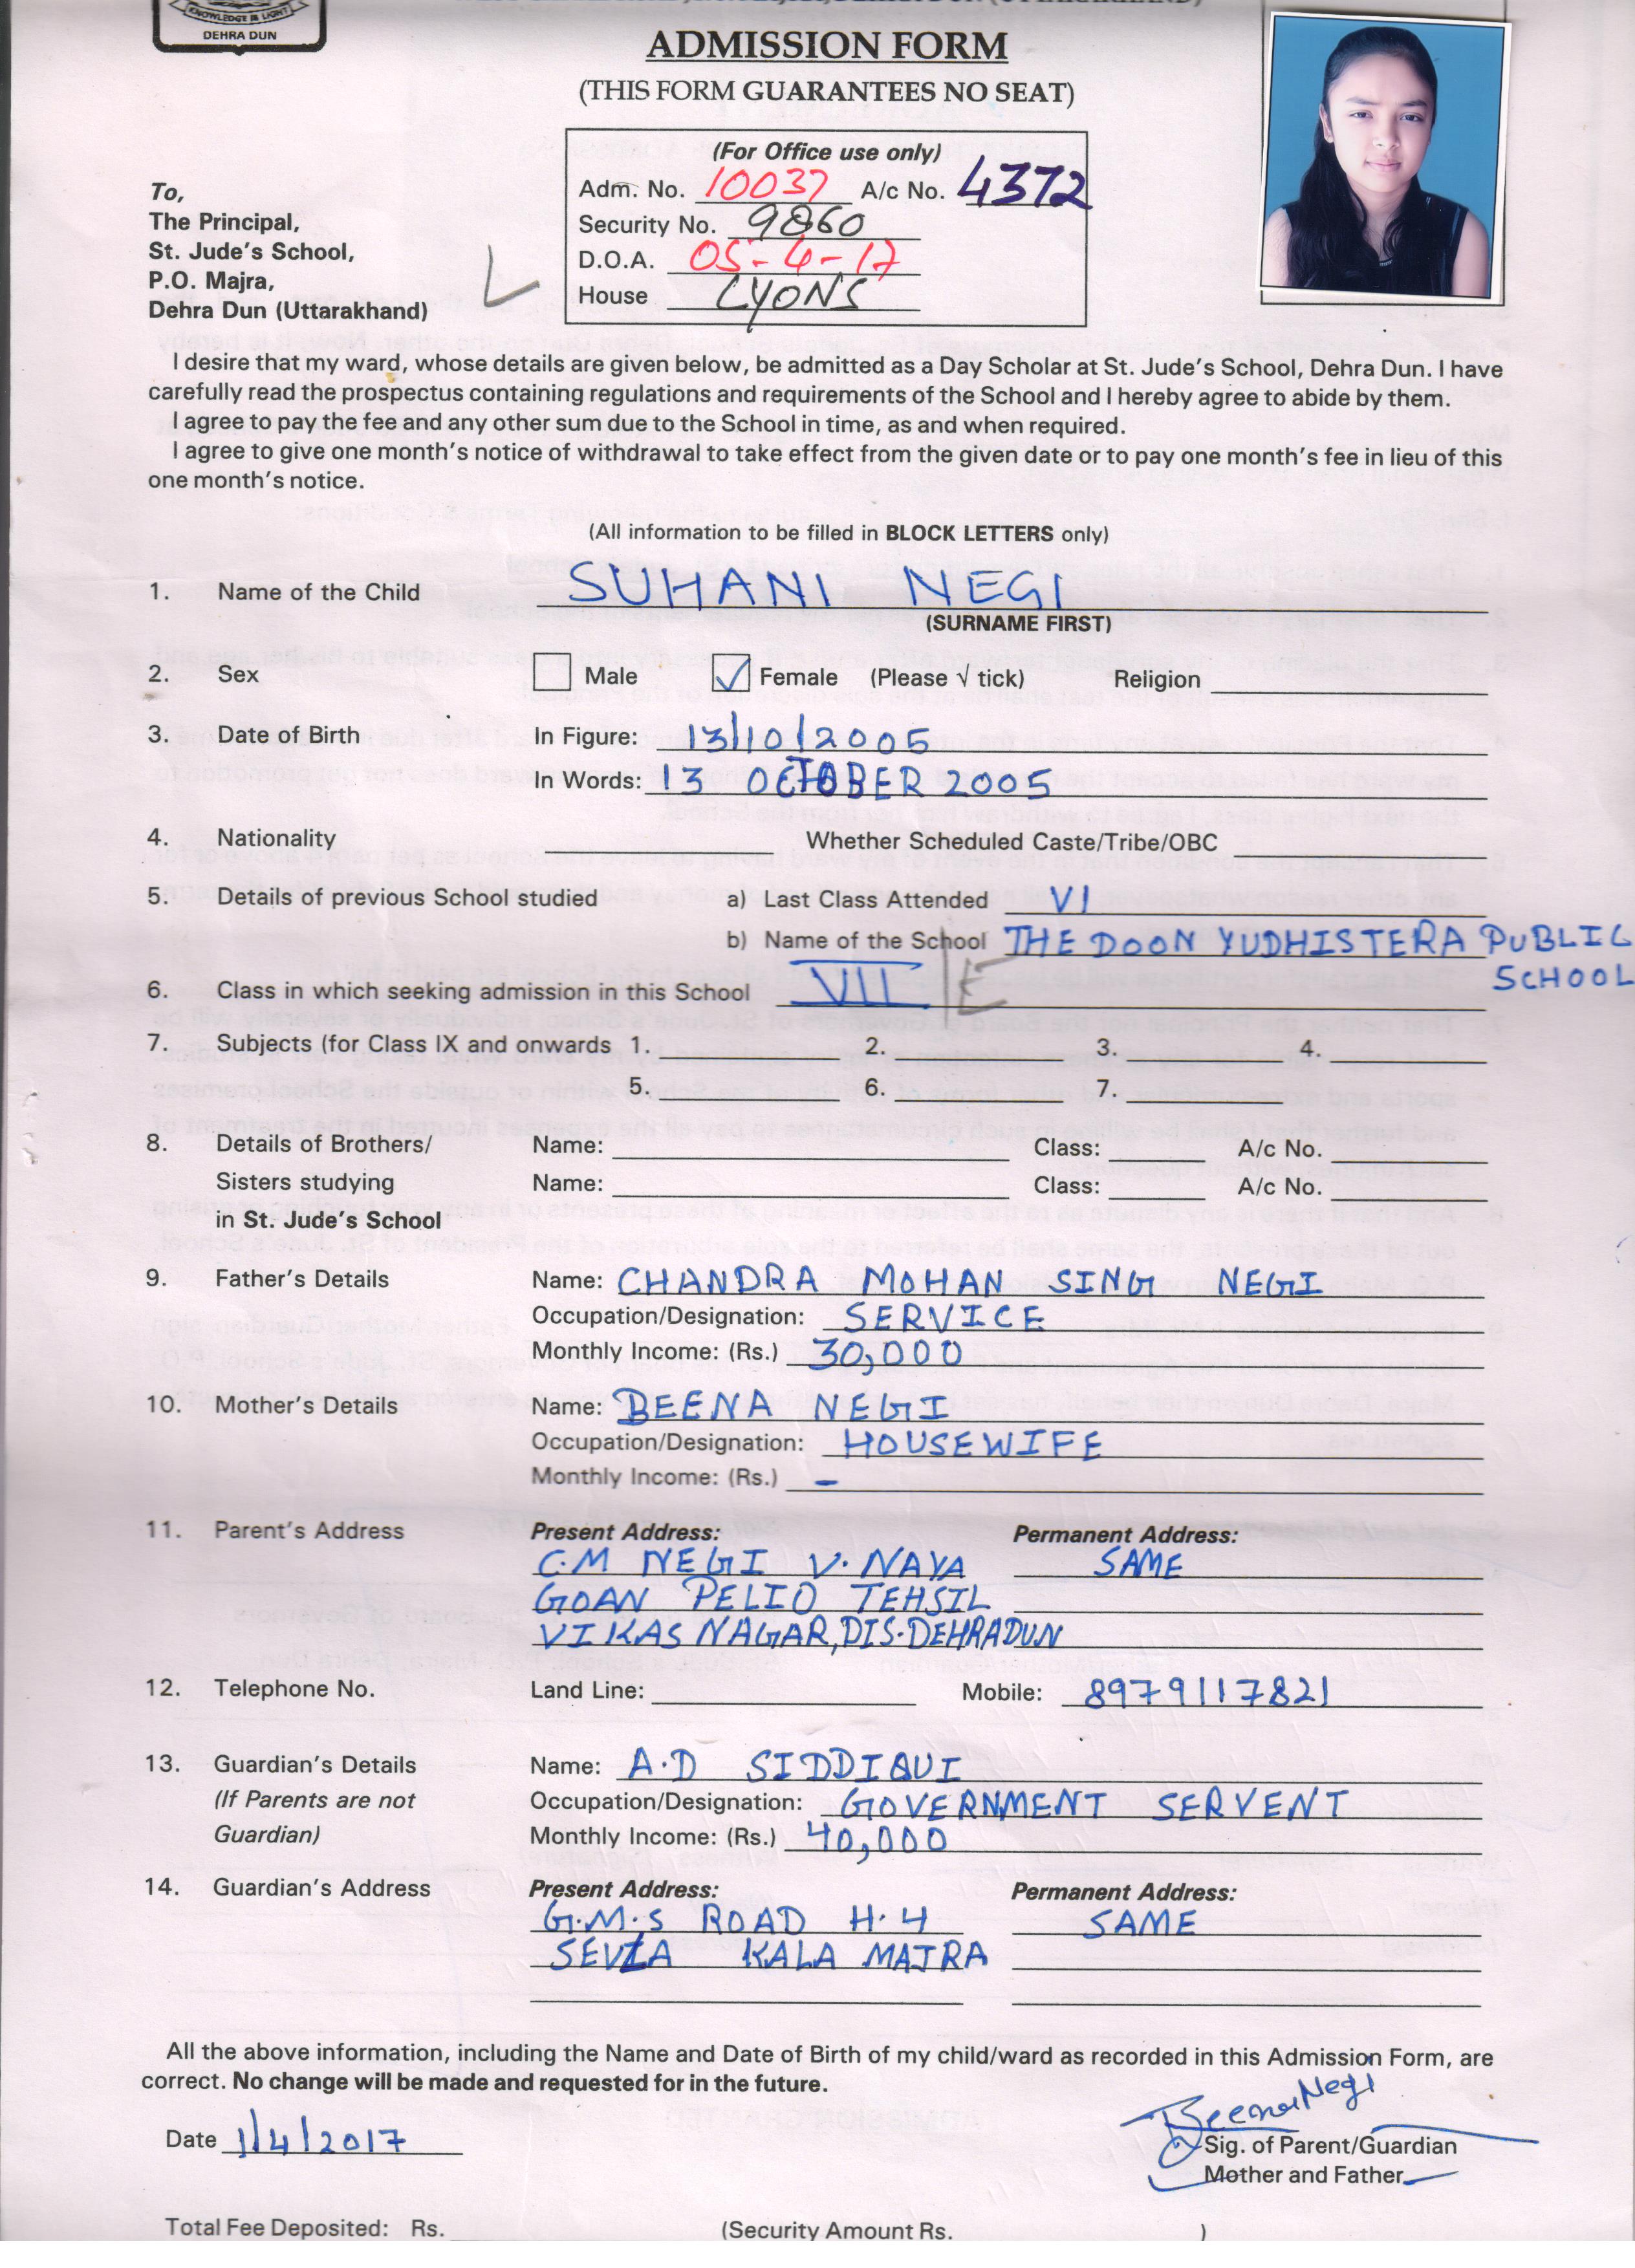 KNOWLEDGE IS LIGHT
DEHRA DUN
ADMISSION FORM
(THIS FORM GUARANTEES NO SEAT)
(For Office use only)
Adm. No. 10037 A/c No. 4372
Security No. 9860
D.O.A. 05-4-17
House LYONS
To,
The Principal,
St. Jude's School,
P.O. Majra,
Dehra Dun (Uttarakhand)
I desire that my ward, whose details are given below, be admitted as a Day Scholar at St. Jude's School, Dehra Dun. I have
carefully read the prospectus containing regulations and requirements of the School and I hereby agree to abide by them.
I agree to pay the fee and any other sum due to the School in time, as and when required.
I agree to give one month's notice of withdrawal to take effect from the given date or to pay one month's fee in lieu of this
one month's notice.
(All information to be filled in BLOCK LETTERS only)
1. Name of the Child SUHANI NEGI
(SURNAME FIRST)
2. Sex Male Female (Please √ tick) Religion
3. Date of Birth In Figure: 13/10/2005
In Words: 13 OCTOBER 2005
4. Nationality Whether Scheduled Caste/Tribe/OBC
5. Details of previous School studied a) Last Class Attended VI
b) Name of the School THE DOON YUDHISTERA PUBLIC
SCHOOL
6. Class in which seeking admission in this School VII E
7. Subjects (for Class IX and onwards 1. 2. 3. 4.
5. 6. 7.
8. Details of Brothers/ Name: Class: A/c No.
Sisters studying Name: Class: A/c No.
in St. Jude's School
9. Father's Details Name: CHANDRA MOHAN SING NEGI
Occupation/Designation: SERVICE
Monthly Income: (Rs.) 30,000
10. Mother's Details Name: BEENA NEGI
Occupation/Designation: HOUSEWIFE
Monthly Income: (Rs.) –
11. Parent's Address Present Address: Permanent Address:
C.M NEGI V. NAYA SAME
GOAN PELIO TEHSIL
VIKAS NAGAR, DIS. DEHRADUN
12. Telephone No. Land Line: Mobile: 8979117821
13. Guardian's Details Name: A.D SIDDIQUI
(If Parents are not Occupation/Designation: GOVERNMENT SERVENT
Guardian) Monthly Income: (Rs.) 40,000
14. Guardian's Address Present Address: Permanent Address:
G.M.S ROAD H. 4 SAME
SEVLA KALA MAJRA
All the above information, including the Name and Date of Birth of my child/ward as recorded in this Admission Form, are
correct. No change will be made and requested for in the future.
Beena Negi
Date 1/4/2017 Sig. of Parent/Guardian
Mother and Father
Total Fee Deposited: Rs. (Security Amount Rs. )